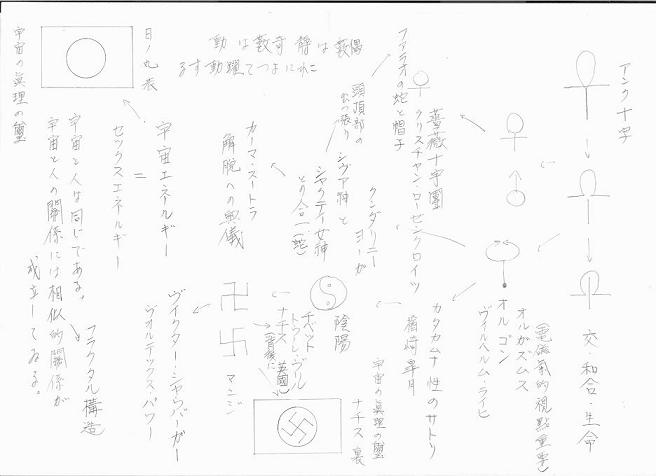 アンク十字
交・和合・生命
(電磁氣的視點重要)
オルガズムス
オルゴン
ヴィルヘルム・ライヒ
薔薇十字團
クリスチャン・ローゼンクロイツ
ファラオの蛇と帽子
頭頂部の
出っ張り
クンダリニー
ヨーガ
シヴァ神と
シャクティ女神
との合一(蛇)
カーマ・スートラ
解脱への奥儀
カタカムナ 性のサトリ
楢崎皐月
陰陽
チベット
トゥーレ・ヴリル
ナチス
英國
(背後に)
宇宙の眞理の璽
ナチス裏
卍
マンジ
ヴィクター・シャウバーガー
ヴォルテックスパワー
動は奇數 靜は偶數
これによつて躍動する
日ノ丸表
宇宙の眞理の璽
宇宙エネルギー
=
セックスエネルギー
宇宙と人は同じである。
宇宙と人の關係には相似的關係が
成立してゐる。
フラクタル構造